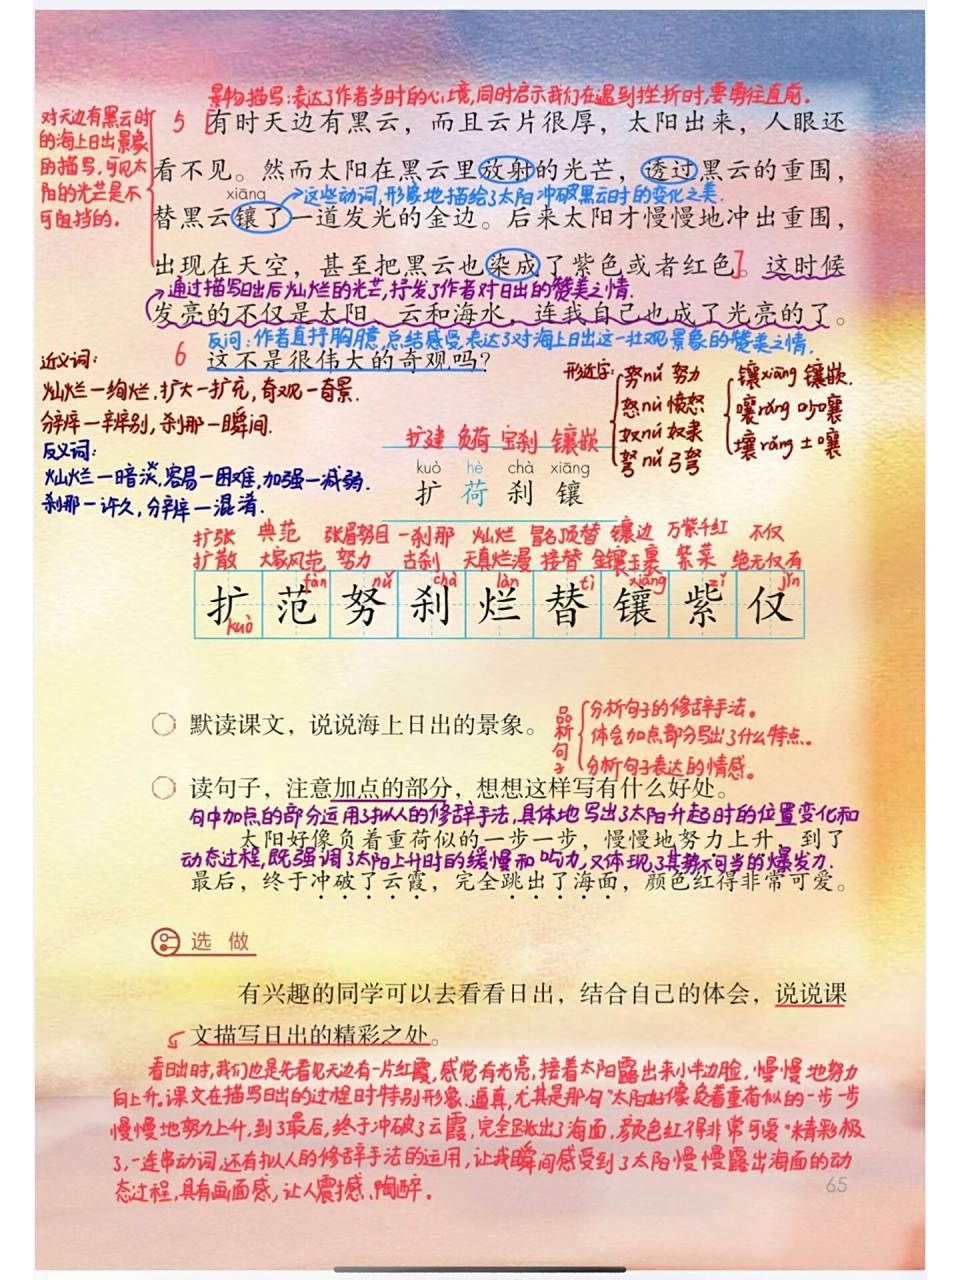 景物描写:表达了作者当时的心境,同时启示我们在遇到挫折时,要勇往直前。
对天边有黑云时
的海上日出景象
的描写,可见太
阳的光芒是不
可阻挡的。
5 [有时天边有黑云，而且云片很厚，太阳出来，人眼还
看不见。然而太阳在黑云里放射的光芒，透过黑云的重围，
xiāng
这些动词,形象地描绘了太阳冲破黑云时的变化之美.
替黑云镶了一道发光的金边。后来太阳才慢慢地冲出重围，
出现在天空，甚至把黑云也染成了紫色或者红色]。这时候
通过描写日出后灿烂的光芒,抒发了作者对日出的赞美之情.
发亮的不仅是太阳、云和海水，连我自己也成了光亮的了。
反问:作者直抒胸臆,总结感受,表达了对海上日出这一壮观景象的赞美之情.
6 这不是很伟大的奇观吗？
近义词:
灿烂—绚烂,扩大—扩充,奇观—奇景.
分辨—辨别,刹那—瞬间.
反义词:
灿烂—暗淡,容易—困难,加强—减弱.
刹那—许久,分辨—混淆.
形近字:
努nǔ 努力
怒nù 愤怒
奴nú 奴隶
弩nǔ 弓弩
镶xiāng 镶嵌.
嚷rǎng 吵嚷
壤rǎng 土壤
扩建 负荷 宝刹 镶嵌
kuò hè chà xiāng
扩 荷 刹 镶
扩张 典范 张眉努目 一刹那 灿烂 冒名顶替 镶边 万紫千红 不仅
扩散 大家风范 努力 古刹 天真烂漫 接替 金镶玉裹 紫菜 绝无仅有
fàn nǔ chà làn tì xiāng zǐ jǐn
扩 范 努 刹 烂 替 镶 紫 仅
kuò
默读课文，说说海上日出的景象。
品析句子
分析句子的修辞手法。
体会加点部分写出了什么特点。
分析句子表达的情感。
读句子，注意加点的部分，想想这样写有什么好处。
句中加点的部分运用了拟人的修辞手法,具体地写出了太阳升起时的位置变化和
太阳好像负着重荷似的一步一步，慢慢地努力上升，到了
动态过程,既强调了太阳上升时的缓慢和吃力,又体现了其势不可当的爆发力.
最后，终于冲破了云霞，完全跳出了海面，颜色红得非常可爱。
选做
有兴趣的同学可以去看看日出，结合自己的体会，说说课
文描写日出的精彩之处。
看日出时,我们也是先看见天边有一片红霞,感觉有光亮,接着太阳露出来小半边脸,慢慢地努力
向上升。课文在描写日出的过程时特别形象、逼真,尤其是那句"太阳好像负着重荷似的一步一步
慢慢地努力上升,到了最后,终于冲破了云霞,完全跳出了海面,颜色红得非常可爱"精彩极
了,一连串动词,还有拟人的修辞手法的运用,让我瞬间感受到了太阳慢慢露出海面的动
态过程,具有画面感,让人震撼、陶醉。
65